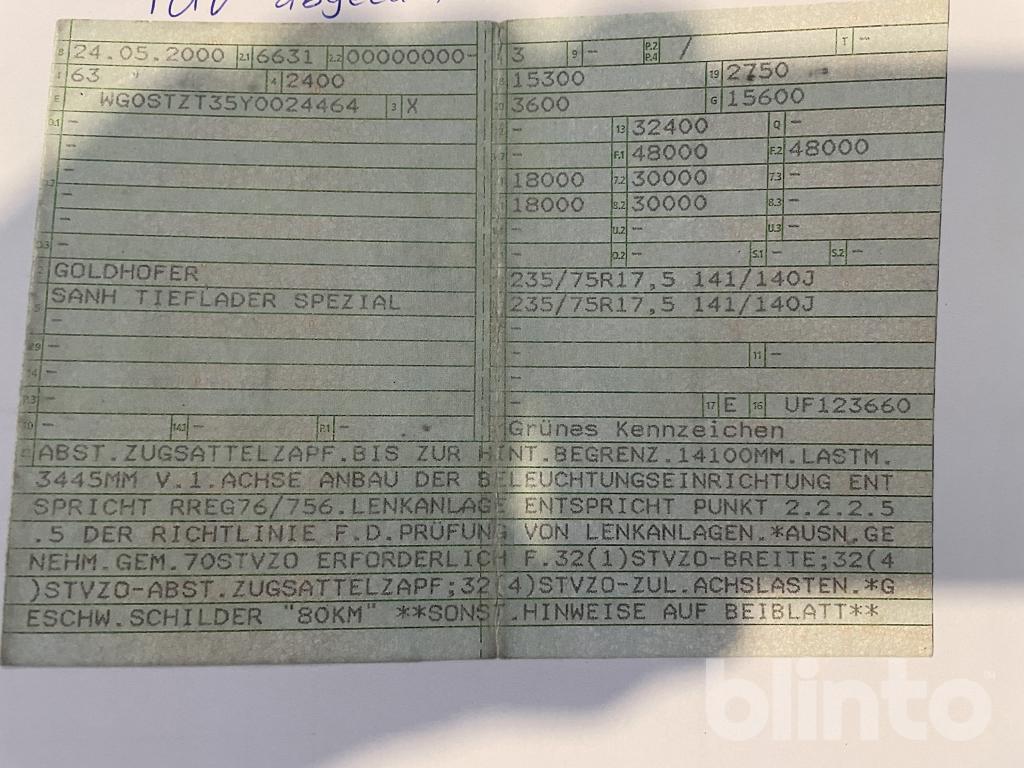 TÜV
B 24.05.2000 2.1 6631 2.2 00000000- / 3 9 - P.2 P.4 / T -
63 4 2400 15300 19 2750
E WG0STZT35Y0024464 3 X 3600 G 15600
- - 13 32400 Q -
- - F.1 48000 F.2 48000
- 18000 7.2 30000 7.3 -
- 18000 8.2 30000 8.3 -
- - U.2 - U.3 -
- - O.2 - S.1 - S.2 -
GOLDHOFER 235/75R17,5 141/140J
SANH TIEFLADER SPEZIAL 235/75R17,5 141/140J
- -
- - 11 -
- -
- 17 E 16 UF123660
10 - 14.1 - P.1 - Grünes Kennzeichen
ABST.ZUGSATTELZAPF.BIS ZUR HINT.BEGRENZ.14100MM.LASTM.
3445MM V.1.ACHSE ANBAU DER BELEUCHTUNGSEINRICHTUNG ENT
SPRICHT RREG76/756.LENKANLAGE ENTSPRICHT PUNKT 2.2.2.5
.5 DER RICHTLINIE F.D.PRÜFUNG VON LENKANLAGEN.*AUSN.GE
NEHM.GEM.70STVZO ERFORDERLICH F.32(1)STVZO-BREITE;32(4
)STVZO-ABST.ZUGSATTELZAPF;32(4)STVZO-ZUL.ACHSLASTEN.*G
ESCHW.SCHILDER "80KM" **SONST.HINWEISE AUF BEIBLATT**
blinto